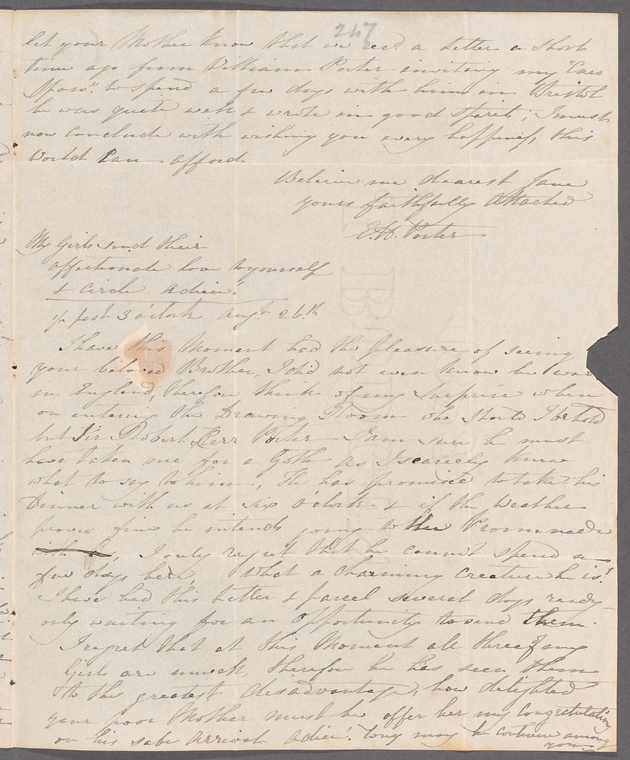 247
let your Mother know that we recd a letter a short
time ago from William Porter inviting my "Caro
Sposo" to spend a few days with him in Bristol
he was quite well & wrote in good spirits; I must
now conclude with wishing you every happiness, this
World can afford
Believe me dearest Jane
yours faithfully Attached
E. H. Porter
My Girls send their
affectionate love to yourself
& circle adieu!
½ past 3 o'clock augt 26th
I have this Moment had the pleasure of seeing
your beloved Brother, I did not even know he was
in England, therefore think of my surprise when
on entering the Drawing Room who should I behold
but Sir Robert Kerr Porter I am sure he must
have taken me for a Goth as I scarcely knew
what to say to him, He has promised to take his
Dinner with us at six o'clock & if the weather
proves fine he intends going to the Promenade
with us, I only regret that he cannot spend a
few days here, What a charming creature he is!
I have had this letter & parcel several days ready
only waiting for an opportunity to send them.
I regret that at this Moment all three of my
Girls are unwell, therefore he has seen them
to the greatest disadvantage, how delighted
your poor Mother must be, offer her my Congratulations
on his safe arrival Adieu! long may he continue among
you